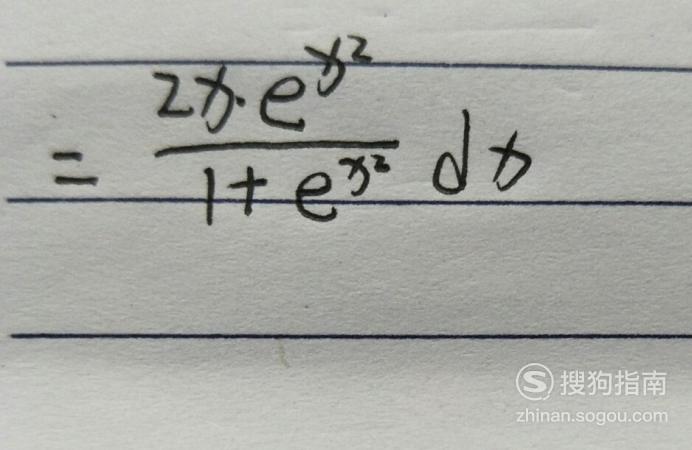 = \frac{2x \cdot e^{x^2}}{1+e^{x^2}} dx
搜狗指南
zhinan.sogou.com